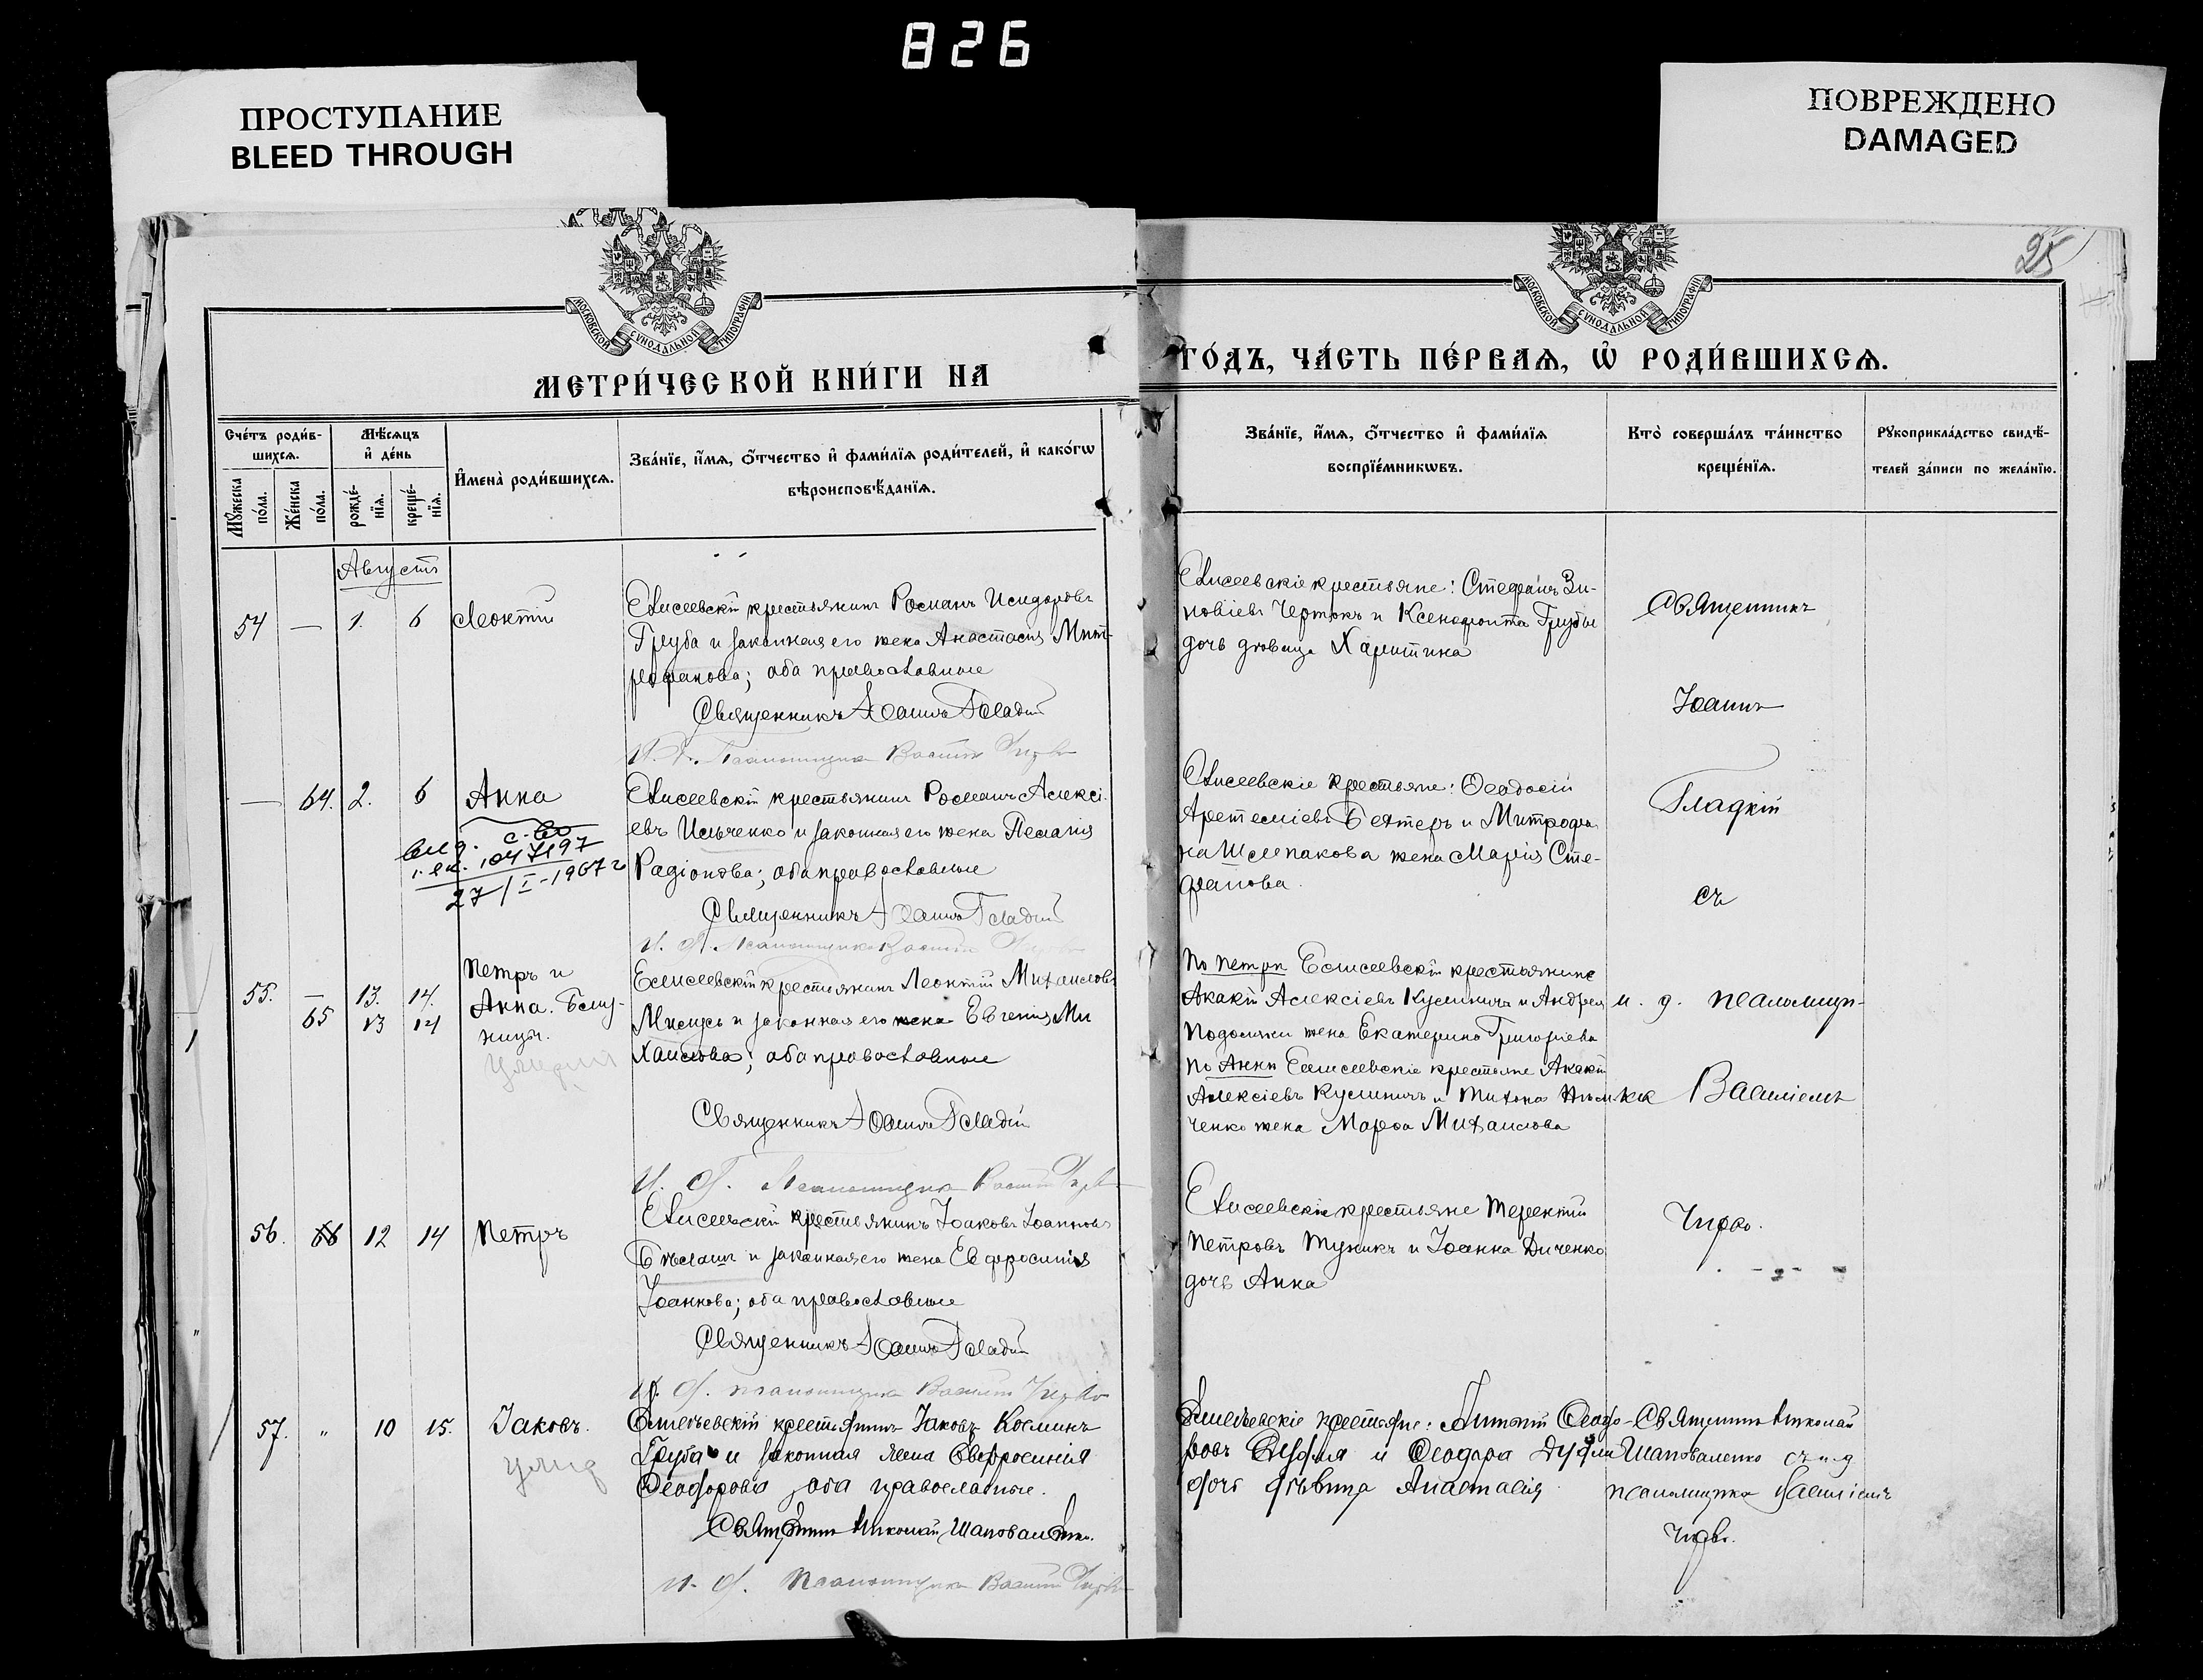 826
ПРОСТУПАНИЕ
BLEED THROUGH
ПОВРЕЖДЕНО
DAMAGED
25
МОСКОВСКОЙ СѴНОДАЛЬНОЙ ТИПОГРАФІИ
МОСКОВСКОЙ СѴНОДАЛЬНОЙ ТИПОГРАФІИ
МЕТРИ́ЧЕСКОЙ КНИ́ГИ НА
ГО́ДЪ, ЧА́СТЬ ПЕ́РВАѦ, Ѡ҆ РОДИ́ВШИХСѦ.
Сче́тъ роди́в-
шихсѧ.
Мꙋ́жеска по́ла.
Же́нска по́ла.
Мѣ́сѧцъ
и҆ де́нь
рожде́-нїѧ.
креще́-нїѧ.
И҆мена̀ роди́вшихсѧ.
Зва́нїе, и҆́мѧ, ѻ҆́тчество и҆ фами́лїѧ роди́телей, и҆ како́гѡ
вѣроисповѣ́данїѧ.
Зва́нїе, и҆́мѧ, ѻ҆́тчество и҆ фами́лїѧ
воспрїе́мникѡвъ.
Кто̀ соверша́лъ та́инство
креще́нїѧ.
Рꙋкоприкла́дство свидѣ́-
телей за́писи по жела́нїю.
Августъ
54 — 1. 6 Леонтій
Елисеевскій крестьянинъ Романъ Исидоровъ
Груба и законная его жена Анастасія Мит-
рофанова; оба православные
Священникъ Іоаннъ Гладкій
И. д. Псаломщика Василій Чирво
Елисеевскіе крестьяне: Стефанъ Зи-
новіевъ Чертокъ и Ксенофонта Грубы
дочь дѣвица Харитина
Священникъ
Іоаннъ
Гладкій
съ
и. д. псаломщи-
ка Василіемъ
Чирво.
— 64. 2. 6 Анна
27/I-1967 г
Елисеевскій крестьянинъ Романъ Алексі-
евъ Ильченко и законная его жена Пелагія
Радіонова; оба православные
Священникъ Іоаннъ Гладкій
И. д. Псаломщика Василій Чирво
Елисеевскіе крестьяне: Ѳеодосій
Артеміевъ и Митрофа-
на Шлепакова жена Марія Сте-
фанова.
55. — 13. 14. Петръ и
65 13 14 Анна. Близ-
ницы.
Елисеевскій крестьянинъ Леонтій Михаиловъ
и законная его жена Евгенія Ми
хаилова; оба православные
Священникъ Іоаннъ Гладкій
И. д. Псаломщика Василій Чирво
По Петрѣ Елисеевскій крестьянинъ
Акакій Алексіевъ Кулиничъ и Андрея
Подоляки жена Екатерина Григоріева
По Аннѣ Елисеевскіе крестьяне Акакій
Алексіевъ Кулиничъ и Тихона
ченко жена Марѳа Михаилова
56. 66 12 14 Петръ
Елисеевскій крестьянинъ Іоаковъ Іоанновъ
и законная его жена Евфросинія
Іоаннова; оба православные
Священникъ Іоаннъ Гладкій
И. д. псаломщика Василій Чирво
Елисеевскіе крестьяне Терентій
Петровъ Тупикъ и Іоанна Диченко
дочь Анна
57. „ 10 15. Іаковъ.
крестьянинъ Іаковъ Косминъ
Груба и законная жена Евфросинія
Ѳеодорова, оба православные.
Священникъ Николай Шаповаленко.
И. д. Псаломщика Василій Чирво
крестьяне: Антоній Ѳеодо-
ровъ и Ѳеодора
дочь дѣвица Анастасія
Священникъ Николай
Шаповаленко съ и. д
псаломщика Василіемъ
Чирво.